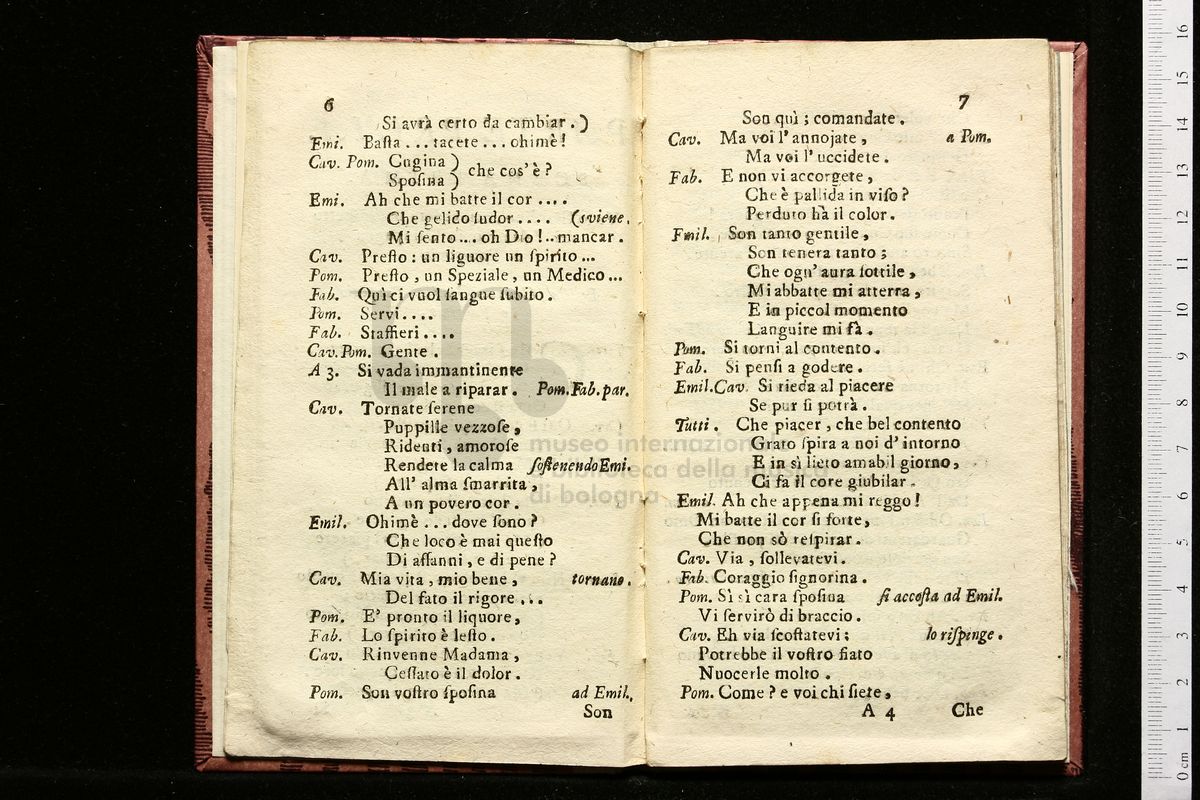 6
Si avrà certo da cambiar.)
Emi. Baſta ... tacete ... ohimè!
Cav. Pom. Cugina } che cos'è?
Spoſina }
Emi. Ah che mi batte il cor ....
Che gelido ſudor .... (sviene.
Mi ſento ... oh Dio!.. mancar.
Cav. Preſto: un liquore un ſpirito ...
Pom. Preſto, un Speziale, un Medico ...
Fab. Quì ci vuol ſangue ſubito.
Pom. Servi ....
Fab. Staffieri ....
Cav. Pom. Gente.
A 3. Si vada immantinente
Il male a riparar. Pom. Fab. par.
Cav. Tornate ſerene
Puppille vezzoſe,
Ridenti, amoroſe
Rendete la calma ſoſtenendo Emi.
All' alma ſmarrita,
A un povero cor.
Emil. Ohimè ... dove ſono?
Che loco è mai queſto
Di affanni, e di pene?
Cav. Mia vita, mio bene, tornano.
Del fato il rigore ...
Pom. E' pronto il liquore,
Fab. Lo ſpirito è leſto.
Cav. Rinvenne Madama,
Ceſſato è il dolor.
Pom. Son voſtro ſpoſina ad Emil.
Son
7
Son quì; comandate.
Cav. Ma voi l' annojate, a Pom.
Ma voi l' uccidete.
Fab. E non vi accorgete,
Che è pallida in viſo?
Perduto hà il color.
Emil. Son tanto gentile,
Son tenera tanto;
Che ogn' aura ſottile,
Mi abbatte mi atterra,
E in piccol momento
Languire mi fà.
Pom. Si torni al contento.
Fab. Si penſi a godere.
Emil. Cav. Si rieda al piacere
Se pur ſi potrà.
Tutti. Che piacer, che bel contento
Grato ſpira a noi d' intorno
E in sì lieto amabil giorno,
Ci fa il core giubilar.
Emil. Ah che appena mi reggo!
Mi batte il cor ſi forte,
Che non sò reſpirar.
Cav. Via, ſollevatevi.
Fab. Coraggio ſignorina.
Pom. Sì sì cara ſpoſina ſi accoſta ad Emil.
Vi ſervirò di braccio.
Cav. Eh via ſcoſtatevi; lo riſpinge.
Potrebbe il voſtro fiato
Nuocerle molto.
Pom. Come? e voi chi ſiete,
A 4 Che
museo internazionale
e biblioteca della musica
di bologna
0 cm 1 2 3 4 5 6 7 8 9 10 11 12 13 14 15 16